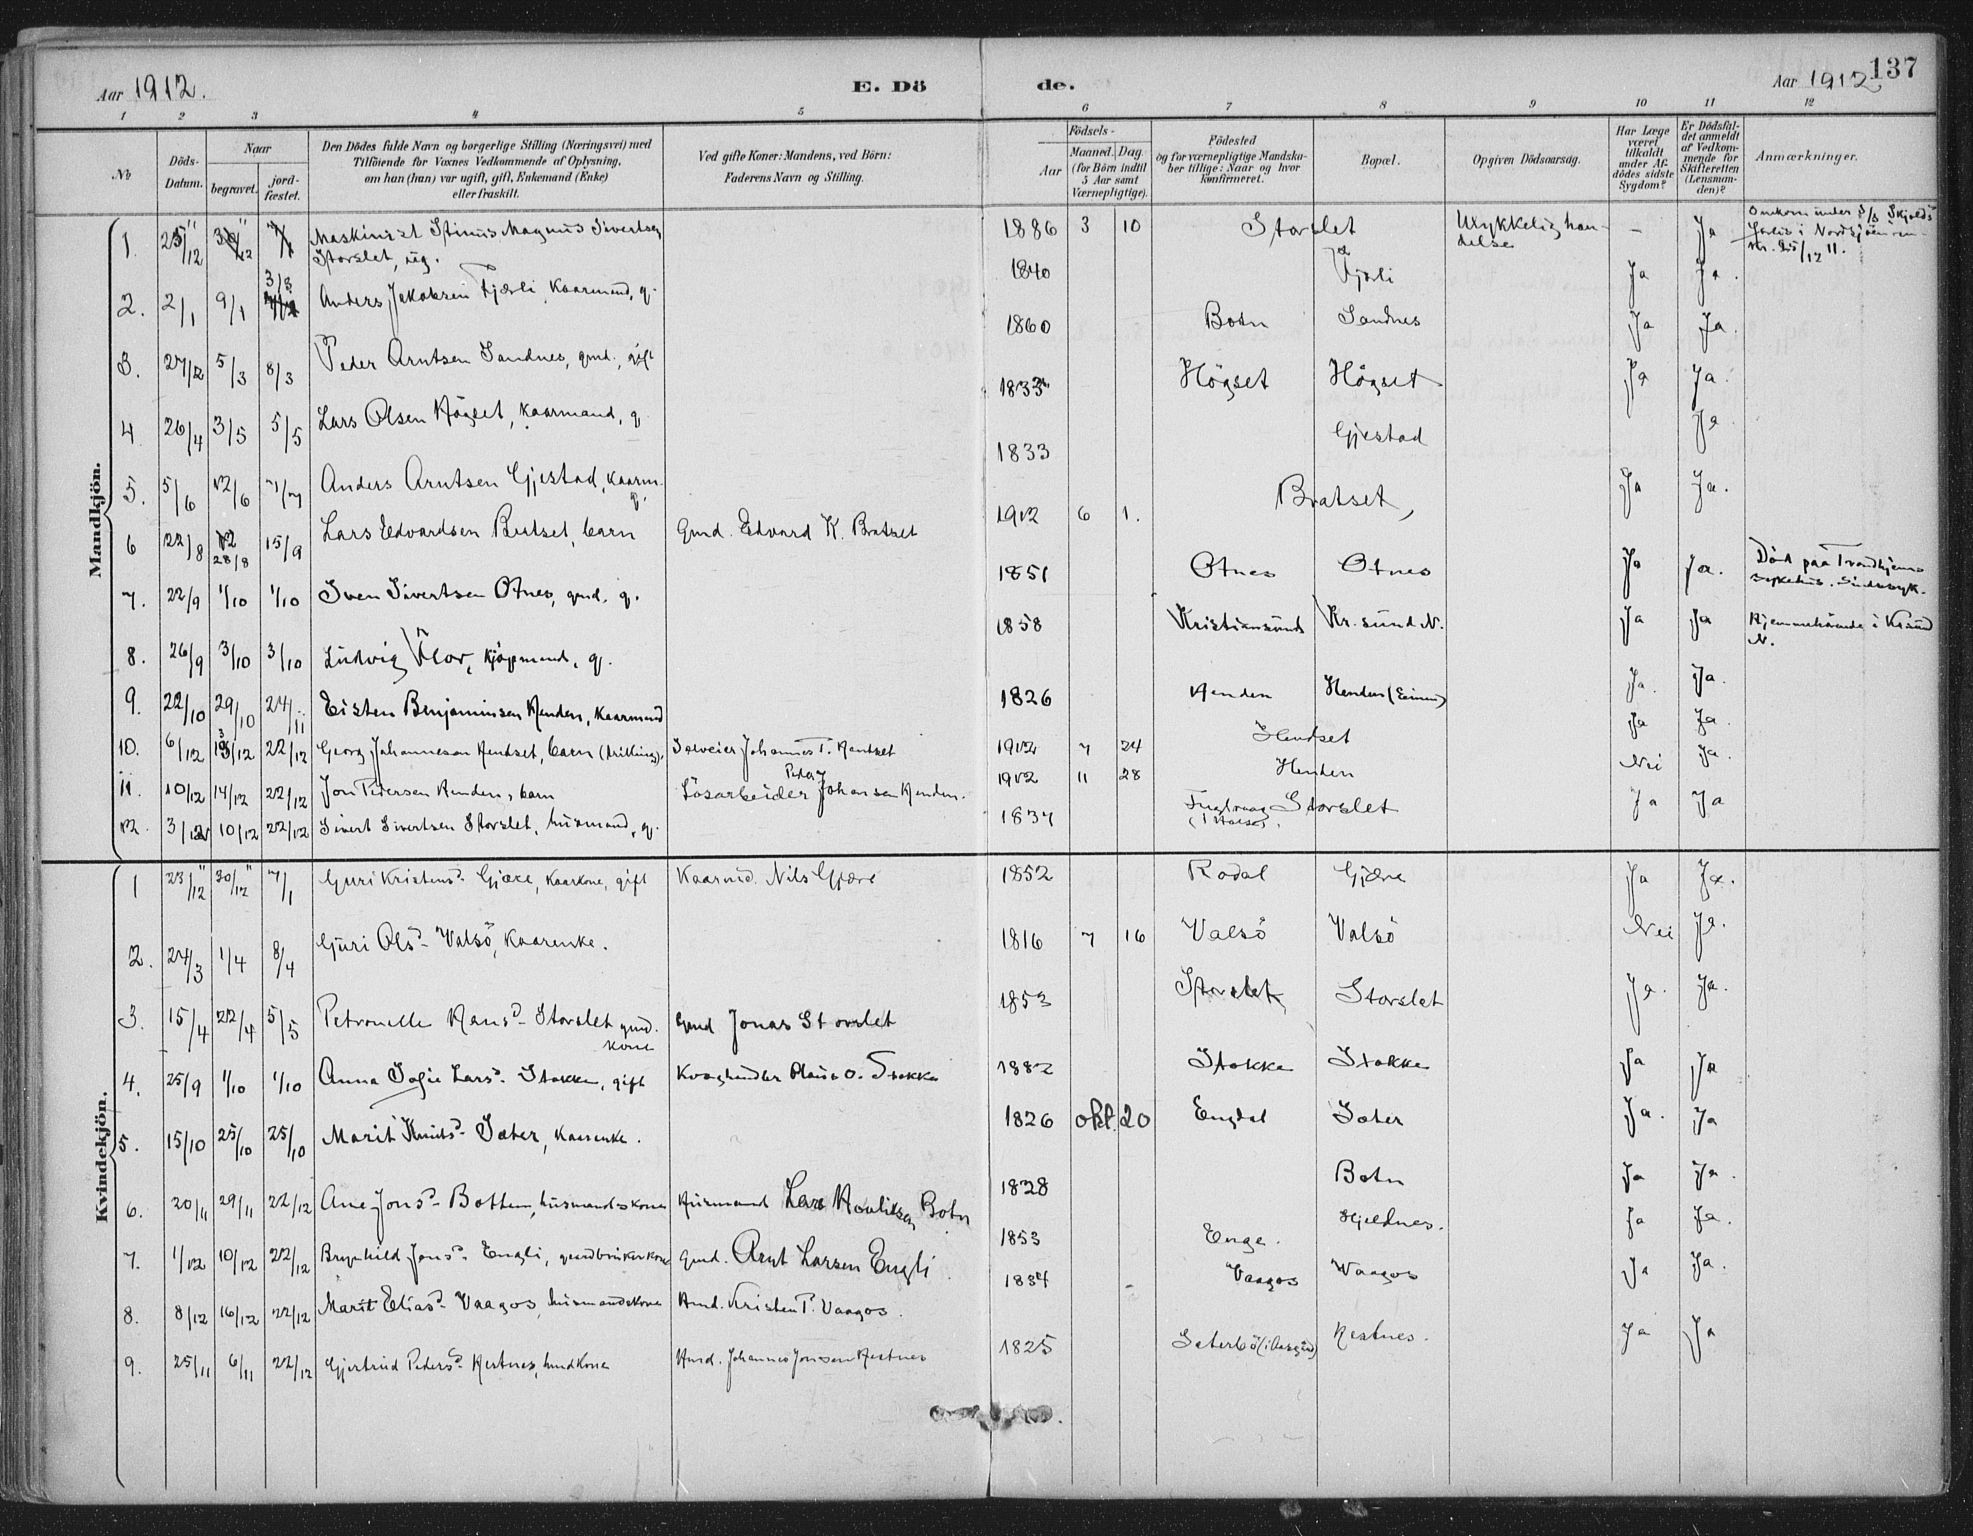 137
Aar 1912. E. Döde. Aar 1912
1 2 3 4 5 6 7 8 9 10 11 12
No
Döds-Datum.
Naar
begravet.
jord-fæstet.
Den Dödes fulde Navn og borgerlige Stilling (Næringsvei) med
Tilföiende for Voxnes Vedkommende af Oplysning,
om han (hun) var ugift, gift, Enkemand (Enke)
eller fraskilt.
Ved gifte Koner: Mandens, ved Börn:
Faderens Navn og Stilling.
Födsels-
Aar
Maaned. Dag.
(for Börn indtil
5 Aar samt
Værnepligtige).
Födested
og for værnepligtige Mandska-
ber tillige: Naar og hvor
konfirmeret.
Bopæl.
Opgiven Dödsaarsag.
Har Læge
været
tilkaldt
under Af-
dödes sidste
Sygdom?
Er Dödsfal-
det anmeldt
af Vedkom-
mende for
Skifteretten
(Lensman-
den)?
Anmærkninger.
Mandkjön.
1. Maskinist Stinus Magnus Sivertsen 1886 3 10 Storslet Ulykkelig hæn- – Ja Omkom under S/S Skjolds
Storslet, ug. delse Forlis i Nordsjöen
25/12 11.
2. 2/1 9/1 3/3 Anders Jakobsen Fjærli, Kaarmand, g. 1840 Fjærli Ja Ja.
3. 27/2 5/3 8/3 Peder Arntsen Sandnes, gmd., gift 1860 Botn Sandnes Ja Ja.
4. 26/4 3/5 5/5 Lars Olsen Högset, kaarmand, g. 1833 Högset Högset Ja Ja.
5. 5/6 12/6 7/7 Anders Arntsen Gjestad, kaarm. g. 1833 Gjestad Ja
6 22/8 28/8 15/9 Lars Edvardsen Bratset, barn Gmd. Edvard K. Bratset 1912 6 1. Bratset, Ja Ja.
7. 22/9 1/10 1/10 Sven Sivertsen Otnes, gmd. g. 1851 Otnes Otnes Ja Ja. Död paa Trondhjems
sykehus. Sindssyk.
8. 26/9 3/10 3/10 Ludvig Flor, Kjöpmand, g. 1858 Kristiansund Kr.sund N. Ja Ja Hjemmehörende i Krsund
N.
9. 22/10 29/10 24/11 Eisten Benjaminsen Henden, Kaarmand 1826 Henden Henden Ja. Ja.
10. 6/12 13/12 22/12 Georg Johannesen Hendset, barn (tvilling), Johannes T. Hendset 1912 7 24 Hendset Ja Ja.
11. 10/12 14/12 22/12 Jon Pedersen Henden, barn Lösarbeider Peder Johansen Henden. 1912 11 28 Henden Nei Ja.
12. 3/12 10/12 22/12 Sivert Sivertsen Storslet, husmand, g. 1837 Fuglvaag Storslet Ja Ja
Kvindekjön.
1 23/12 11 30/12 11 7/1 Guri Kristensd. Gjære, Kaarkone, gift Kaarmd. Nils Gjære 1852 Rodal Gjære Ja Ja.
2. 24/3 1/4 8/4 Guri Olsd. Valsö, Kaarenke. 1816 7 16 Valsö Valsö Nei Ja.
3. 15/4 22/4 5/5 Petronelle Hansd. Storslet gmd. Gmd Jonas Storslet 1853 Storslet Storslet Ja. Ja.
kone
4. 25/9 1/10 1/10 Anna Sofie Larsd. Stokke, gift Kvæghandler O. Stokke 1882 Stokke Stokke Ja Ja
5. 15/10 25/10 25/10 Marit Knutsd. Sæter, Kaarenke. 1826 okt. 20 Engdal Sæter Ja. Ja
6. 20/11 29/11 22/12 Ane Jonsd. Botten, husmandskone Husmand Lars Botn 1828 Botn Ja Ja.
7. 1/12 10/12 22/12 Brynhild Jonsd. Engli, gaardbrukerkone Gmd. Arnt Larsen Engli 1853 Enge. Hjeldnes. Ja Ja.
8. 8/12 16/12 22/12 Marit Eliasd. Vaagos, husmandskone Hmd. Kristen P. Vaagos. 1834 Vaagos Vaagos Ja Ja.
9. 25/11 6/11 22/12 Gjertrud Pedersd. Hestnes, Hmd. Johannes Jonsen Hestnes 1825 Seterbö Hestnes. Ja Ja